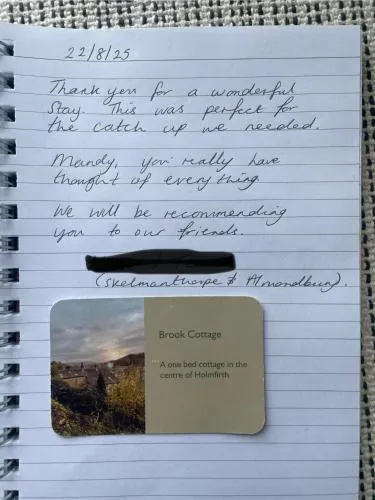 22/8/25
Thank you for a wonderful
Stay. This was perfect for
the catch up we needed.
Mandy, you really have
thought of everything
We will be recommending
you to our friends.
(Skelmanthorpe & Almondbury).
Brook Cottage
A one bed cottage in the
centre of Holmfirth